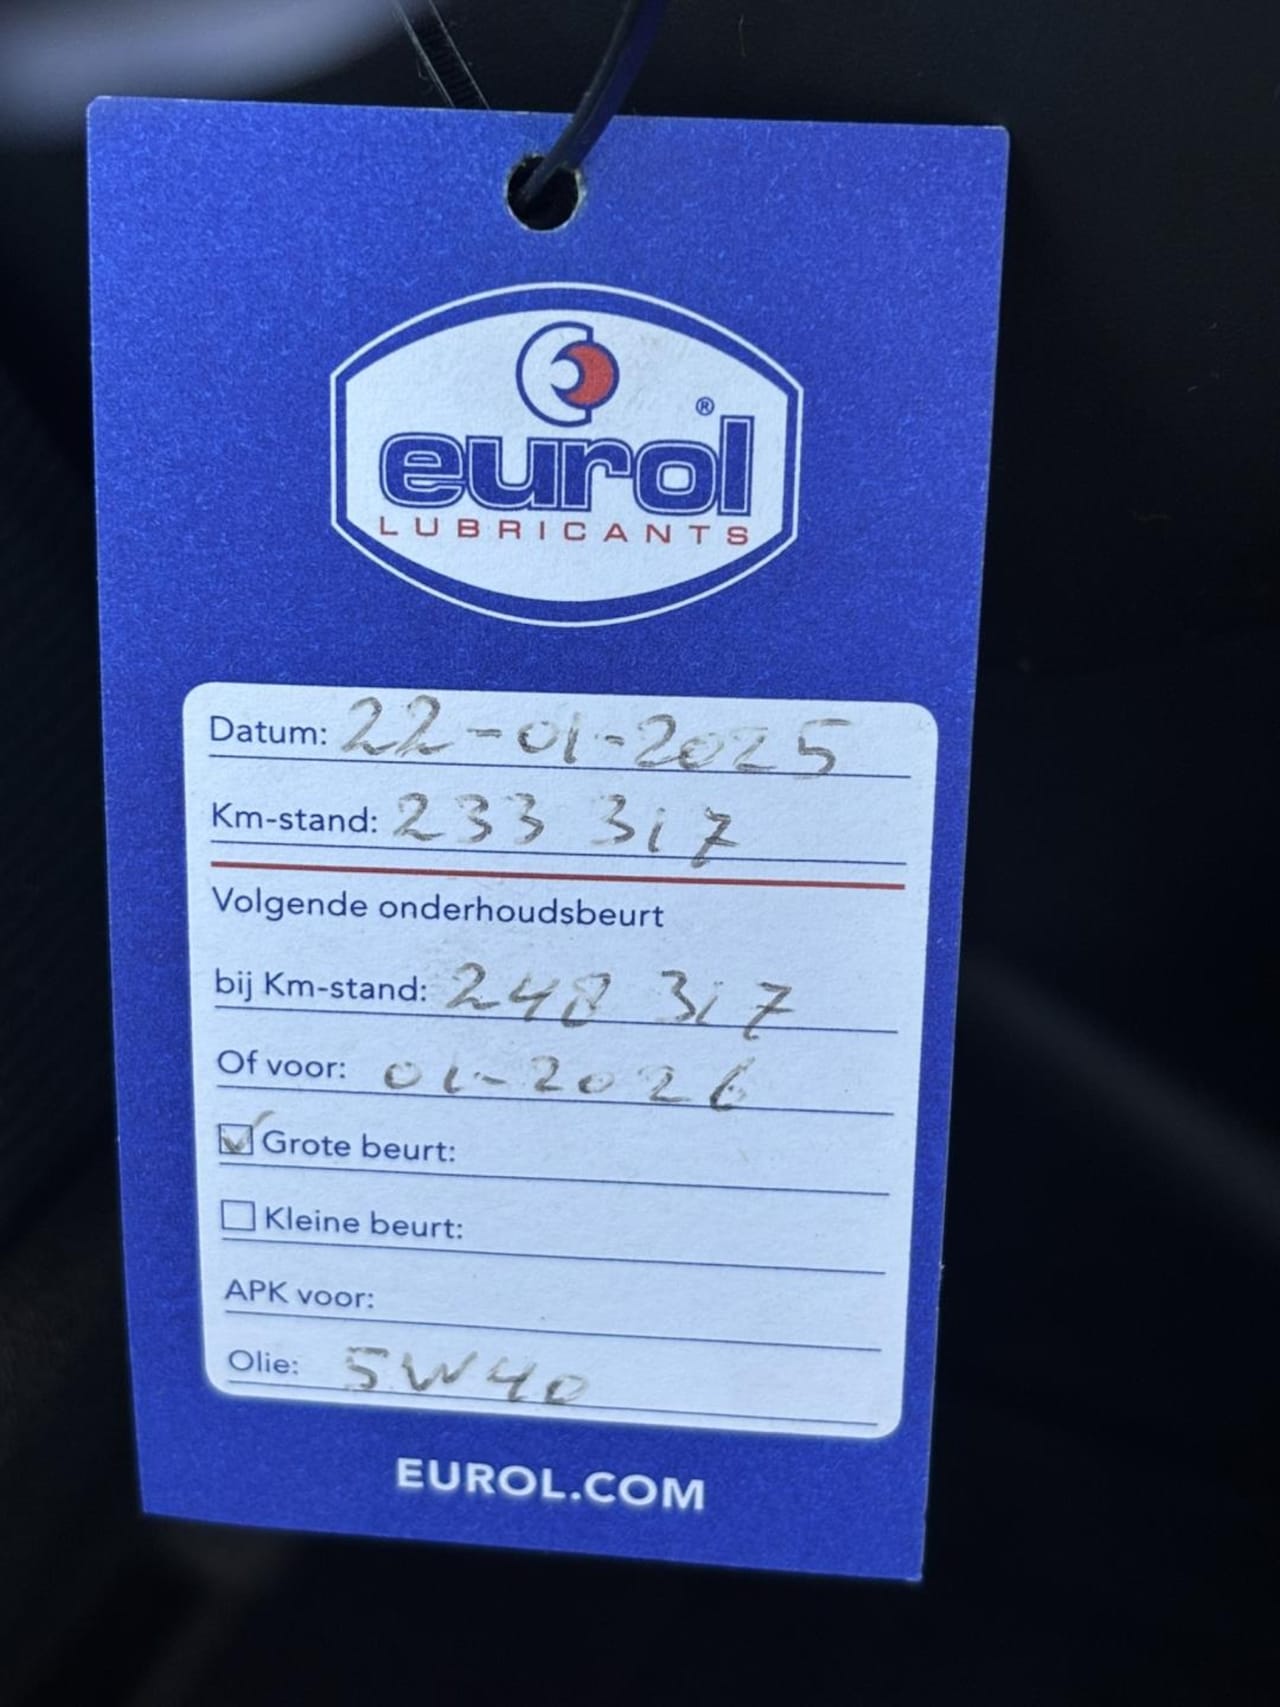 eurol®
LUBRICANTS
Datum: 22-01-2025
Km-stand: 233 317
Volgende onderhoudsbeurt
bij Km-stand: 248 317
Of voor: 01-2026
Grote beurt:
Kleine beurt:
APK voor:
Olie: 5W40
EUROL.COM